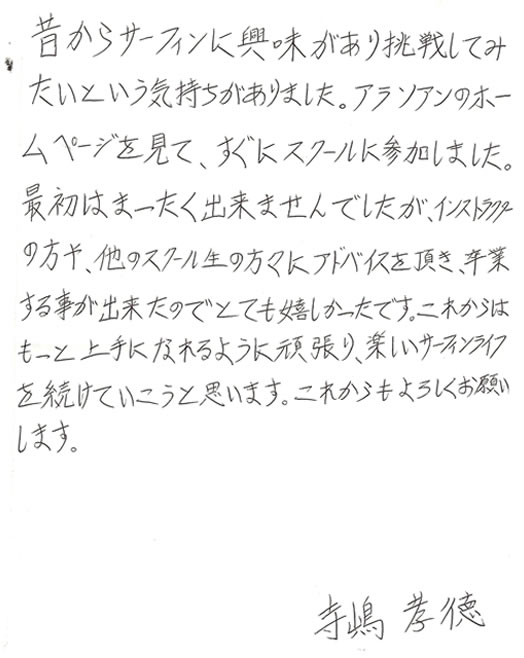 昔からサーフィンに興味があり挑戦してみ
たいという気持ちがありました。アランアンのホー
ムページを見て、すぐにスクールに参加しました。
最初はまったく出来ませんでしたが、インストラクター
の方や、他のスクール生の方々にアドバイスを頂き、卒業
する事が出来たのでとても嬉しかったです。これからは
もっと上手になれるように頑張り、楽しいサーフィンライフ
を続けていこうと思います。これからもよろしくお願い
します。
寺嶋 孝徳